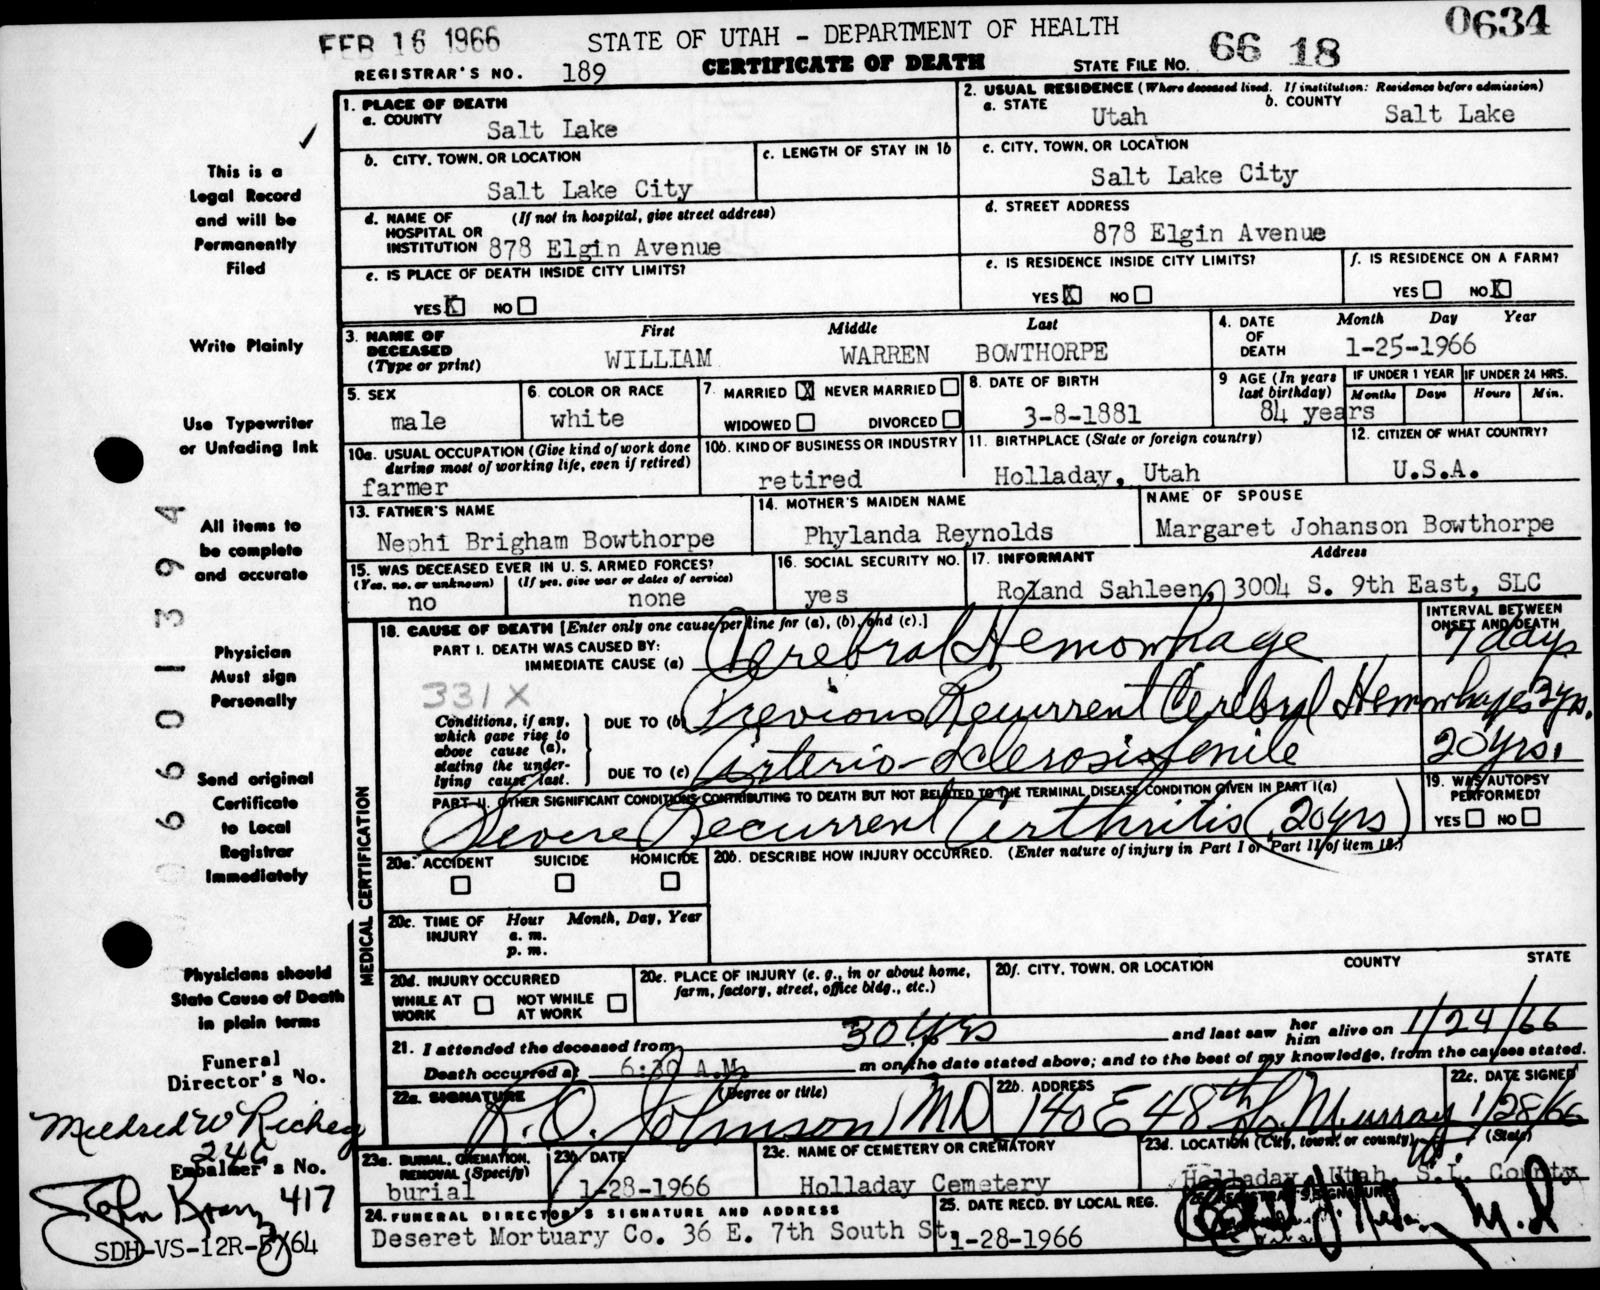 FEB 16 1966
STATE OF UTAH - DEPARTMENT OF HEALTH
0634
REGISTRAR'S NO. 189
CERTIFICATE OF DEATH
STATE FILE NO. 66 18
This is a
Legal Record
and will be
Permanently
Filed
Write Plainly
Use Typewriter
or Unfading Ink
All items to
be complete
and accurate
Physician
Must sign
Personally
Send original
Certificate
to Local
Registrar
Immediately
Physicians should
State Cause of Death
in plain terms
Funeral
Director's No.
Mildred W Richey
246
Embalmer's No.
John 417
SDH-VS-12R-5/64
06601394
1. PLACE OF DEATH
a. COUNTY
Salt Lake
2. USUAL RESIDENCE (Where deceased lived. If institution: Residence before admission)
a. STATE Utah b. COUNTY Salt Lake
b. CITY, TOWN, OR LOCATION
Salt Lake City
c. LENGTH OF STAY IN 1b
c. CITY, TOWN, OR LOCATION
Salt Lake City
d. NAME OF HOSPITAL OR INSTITUTION (If not in hospital, give street address)
878 Elgin Avenue
d. STREET ADDRESS
878 Elgin Avenue
e. IS PLACE OF DEATH INSIDE CITY LIMITS?
YES X NO
e. IS RESIDENCE INSIDE CITY LIMITS?
YES X NO
f. IS RESIDENCE ON A FARM?
YES NO X
3. NAME OF DECEASED (Type or print)
First Middle Last
WILLIAM WARREN BOWTHORPE
4. DATE OF DEATH Month Day Year
1-25-1966
5. SEX
male
6. COLOR OR RACE
white
7. MARRIED X NEVER MARRIED
WIDOWED DIVORCED
8. DATE OF BIRTH
3-8-1881
9 AGE (In years last birthday)
84 years
IF UNDER 1 YEAR IF UNDER 24 HRS.
Months Days Hours Min.
10a. USUAL OCCUPATION (Give kind of work done during most of working life, even if retired)
farmer
10b. KIND OF BUSINESS OR INDUSTRY
retired
11. BIRTHPLACE (State or foreign country)
Holladay, Utah
12. CITIZEN OF WHAT COUNTRY?
U.S.A.
13. FATHER'S NAME
Nephi Brigham Bowthorpe
14. MOTHER'S MAIDEN NAME
Phylanda Reynolds
NAME OF SPOUSE
Margaret Johanson Bowthorpe
15. WAS DECEASED EVER IN U. S. ARMED FORCES?
(Yes, no, or unknown) (If yes, give war or dates of service)
no none
16. SOCIAL SECURITY NO.
yes
17. INFORMANT Address
Roland Sahleen, 3004 S. 9th East, SLC
MEDICAL CERTIFICATION
18. CAUSE OF DEATH [Enter only one cause per line for (a), (b), and (c).]
INTERVAL BETWEEN ONSET AND DEATH
PART I. DEATH WAS CAUSED BY:
IMMEDIATE CAUSE (a) Cerebral Hemorrhage 7 days
331X
Conditions, if any, which gave rise to above cause (a), stating the underlying cause last.
DUE TO (b) Previous Recurrent Cerebral Hemorrhages 3 yrs.
DUE TO (c) Arterio-sclerosis senile 20 yrs.
PART II. OTHER SIGNIFICANT CONDITIONS CONTRIBUTING TO DEATH BUT NOT RELATED TO THE TERMINAL DISEASE CONDITION GIVEN IN PART I(a)
Severe Recurrent Arthritis (20 yrs)
19. WAS AUTOPSY PERFORMED?
YES NO
20a. ACCIDENT SUICIDE HOMICIDE
20b. DESCRIBE HOW INJURY OCCURRED. (Enter nature of injury in Part I or Part II of item 18.)
20c. TIME OF INJURY Hour Month, Day, Year
a. m.
p. m.
20d. INJURY OCCURRED
WHILE AT WORK NOT WHILE AT WORK
20e. PLACE OF INJURY (e. g., in or about home, farm, factory, street, office bldg., etc.)
20f. CITY, TOWN, OR LOCATION COUNTY STATE
21. I attended the deceased from 30 yrs and last saw her him alive on 1/24/66
Death occurred at 6:30 A.M. m on the date stated above; and to the best of my knowledge, from the causes stated.
22a. SIGNATURE (Degree or title)
R. O. Johnson MD
22b. ADDRESS
140 E 48th So. Murray
22c. DATE SIGNED
1/28/66
23a. BURIAL, CREMATION, REMOVAL (Specify)
burial
23b. DATE
1-28-1966
23c. NAME OF CEMETERY OR CREMATORY
Holladay Cemetery
23d. LOCATION (City, town, or county) (State)
Holladay, Utah, S. L. County
24. FUNERAL DIRECTOR'S SIGNATURE AND ADDRESS
Deseret Mortuary Co. 36 E. 7th South St.
25. DATE RECD. BY LOCAL REG.
1-28-1966
REGISTRAR'S SIGNATURE
M.D.